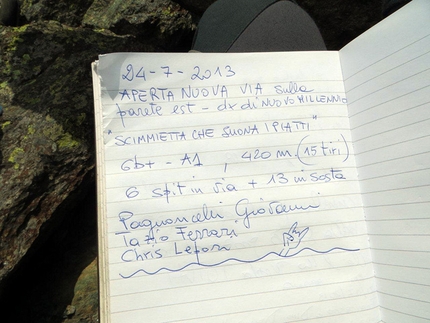 24-7-2013
APERTA NUOVA VIA sulla
parete est - dx di NUOVO MILLENNIO
"SCIMMIETTA CHE SUONA I PIATTI"
6b+ - A1 , 420 m. (15 tiri)
6 spit in via + 13 in sosta
Pagnoncelli Giovanni
Tazio Ferrari
Chris